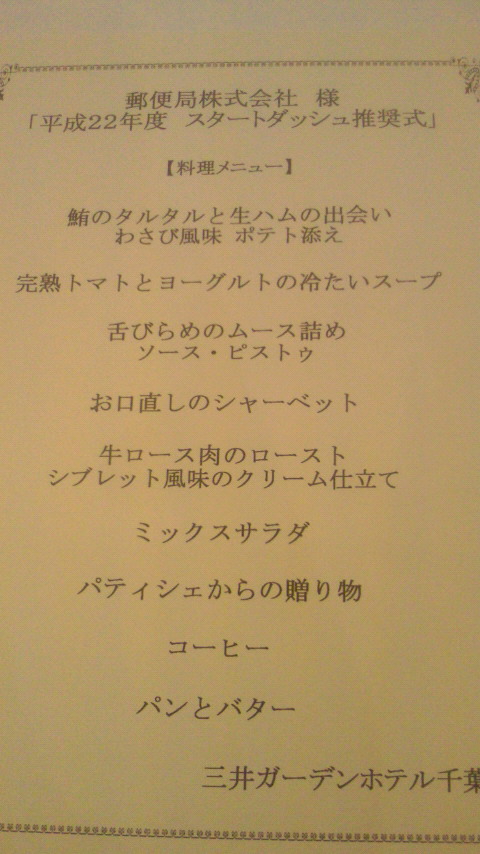 郵便局株式会社 様
「平成22年度 スタートダッシュ推奨式」
【料理メニュー】
鮪のタルタルと生ハムの出会い
わさび風味 ポテト添え
完熟トマトとヨーグルトの冷たいスープ
舌びらめのムース詰め
ソース・ピストゥ
お口直しのシャーベット
牛ロース肉のロースト
シブレット風味のクリーム仕立て
ミックスサラダ
パティシェからの贈り物
コーヒー
パンとバター
三井ガーデンホテル千葉